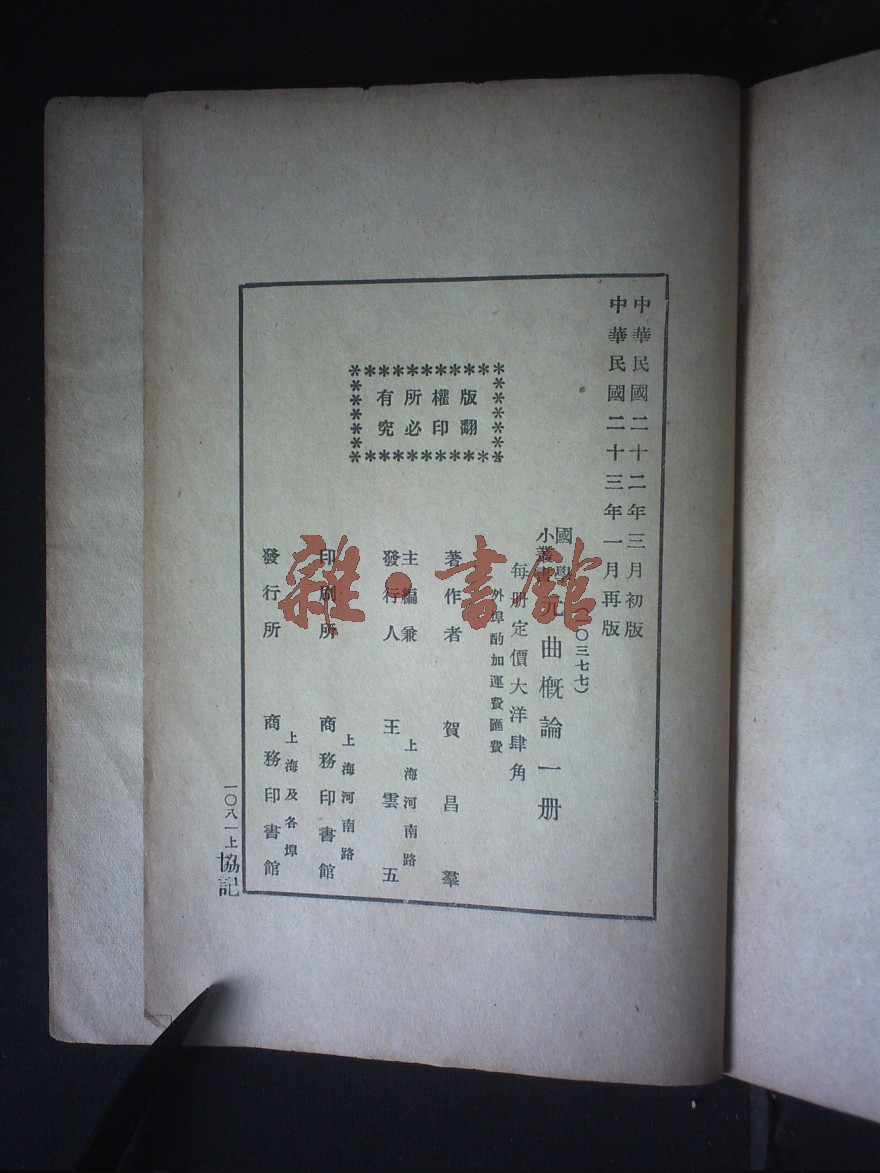 中華民國二十二年三月初版
中華民國二十三年一月再版
(一〇三七七)
國學
小叢書
元曲概論一册
每册定價大洋肆角
外埠酌加運費匯費
版權所有
翻印必究
著作者 賀昌羣
主編兼
發行人
上海河南路
王雲五
印刷所
上海河南路
商務印書館
發行所
上海及各埠
商務印書館
一〇八一上
協記
雜·書館